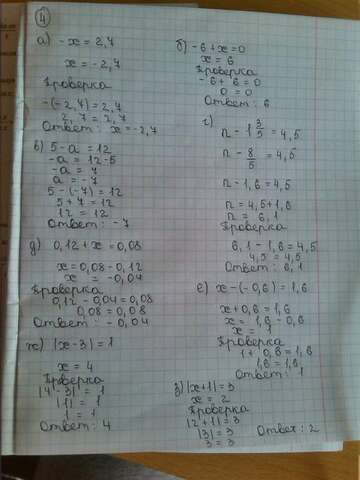 4
а) -x = 2,7
x = -2,7
Проверка
-(-2,7) = 2,7
2,7 = 2,7
Ответ: x = -2,7
б) -6 + x = 0
x = 6
Проверка
-6 + 6 = 0
0 = 0
Ответ: 6
в) 5 - a = 12
-a = 12 - 5
-a = 7
a = -7
5 - (-7) = 12
5 + 7 = 12
12 = 12
Ответ: -7
г)
n - 1 3/5 = 4,5
n - 8/5 = 4,5
n - 1,6 = 4,5
n = 4,5 + 1,6
n = 6,1
Проверка
6,1 - 1,6 = 4,5
4,5 = 4,5
Ответ: 6,1
д) 0,12 + x = 0,08
x = 0,08 - 0,12
x = -0,04
Проверка
0,12 - 0,04 = 0,08
0,08 = 0,08
Ответ: -0,04
е) x - (-0,6) = 1,6
x + 0,6 = 1,6
x = 1,6 - 0,6
x = 1
Проверка
1 + 0,6 = 1,6
1,6 = 1,6
Ответ: 1
ж) |x - 3| = 1
x = 4
Проверка
|4 - 3| = 1
|1| = 1
1 = 1
Ответ: 4
з) |x + 1| = 3
x = 2
Проверка
|2 + 1| = 3
|3| = 3
3 = 3
Ответ: 2